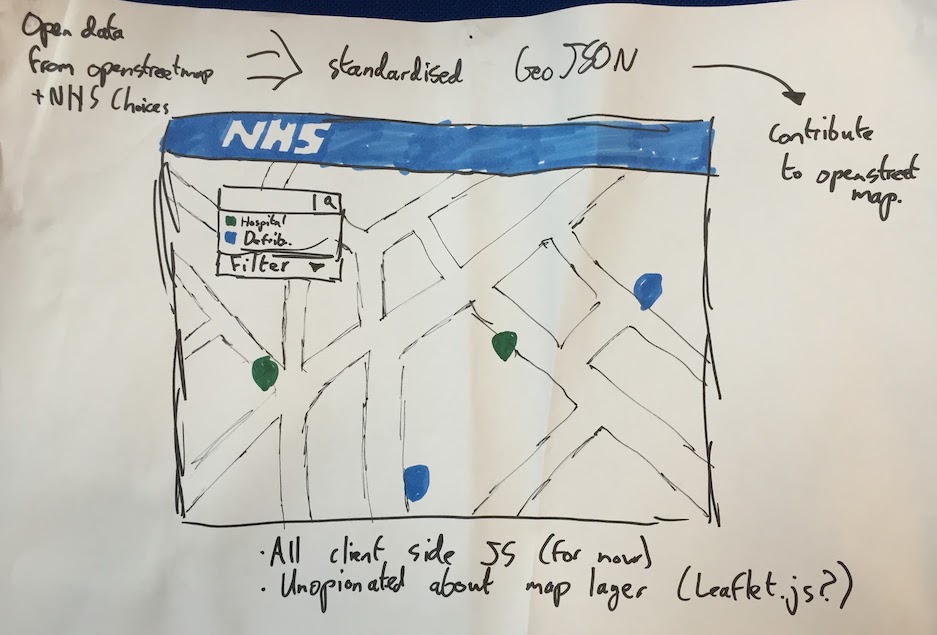 Open data
from openstreetmap
+ NHS Choices
standardised GeoJSON
contribute
to openstreet
map.
NHS
Hospital
Defrib.
Filter
· All client side JS (for now)
· Unopionated about map layer (Leaflet.js?)